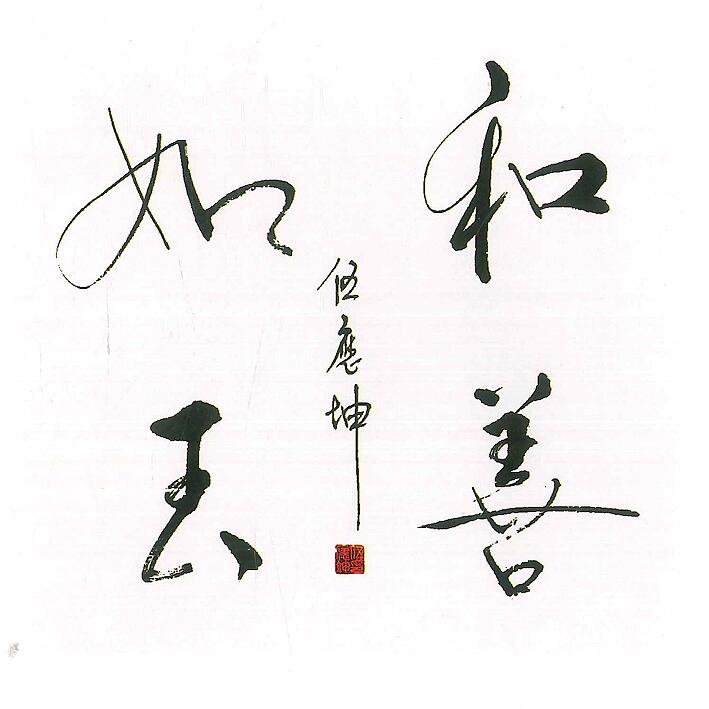 和善
如玉
伍應坤